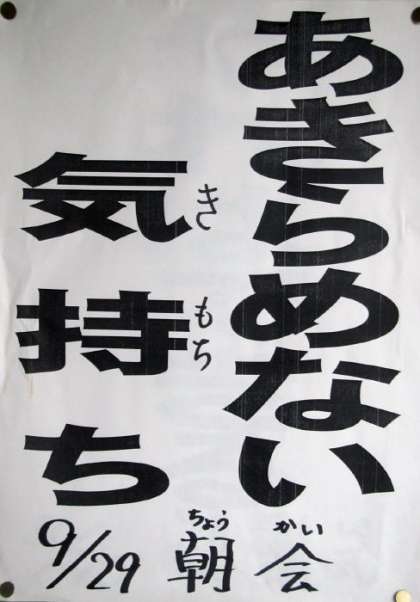 あきらめない
気持ち
きもち
9/29 朝会
ちょうかい